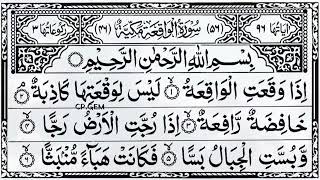 اٰيَاتُهَا ٩٦ (٥٦) سُوْرَةُ الْوَاقِعَةِ مَكِّيَّةٌ (٤٦) رُكُوْعَاتُهَا ٣
بِسْمِ اللّٰهِ الرَّحْمٰنِ الرَّحِيْمِ
اِذَا وَقَعَتِ الْوَاقِعَةُ ۝١ لَيْسَ لِوَقْعَتِهَا كَاذِبَةٌ ۝٢
CP GEM
خَافِضَةٌ رَّافِعَةٌ ۝٣ اِذَا رُجَّتِ الْاَرْضُ رَجًّا ۝٤
وَّبُسَّتِ الْجِبَالُ بَسًّا ۝٥ فَكَانَتْ هَبَآءً مُّنْۢبَثًّا ۝٦